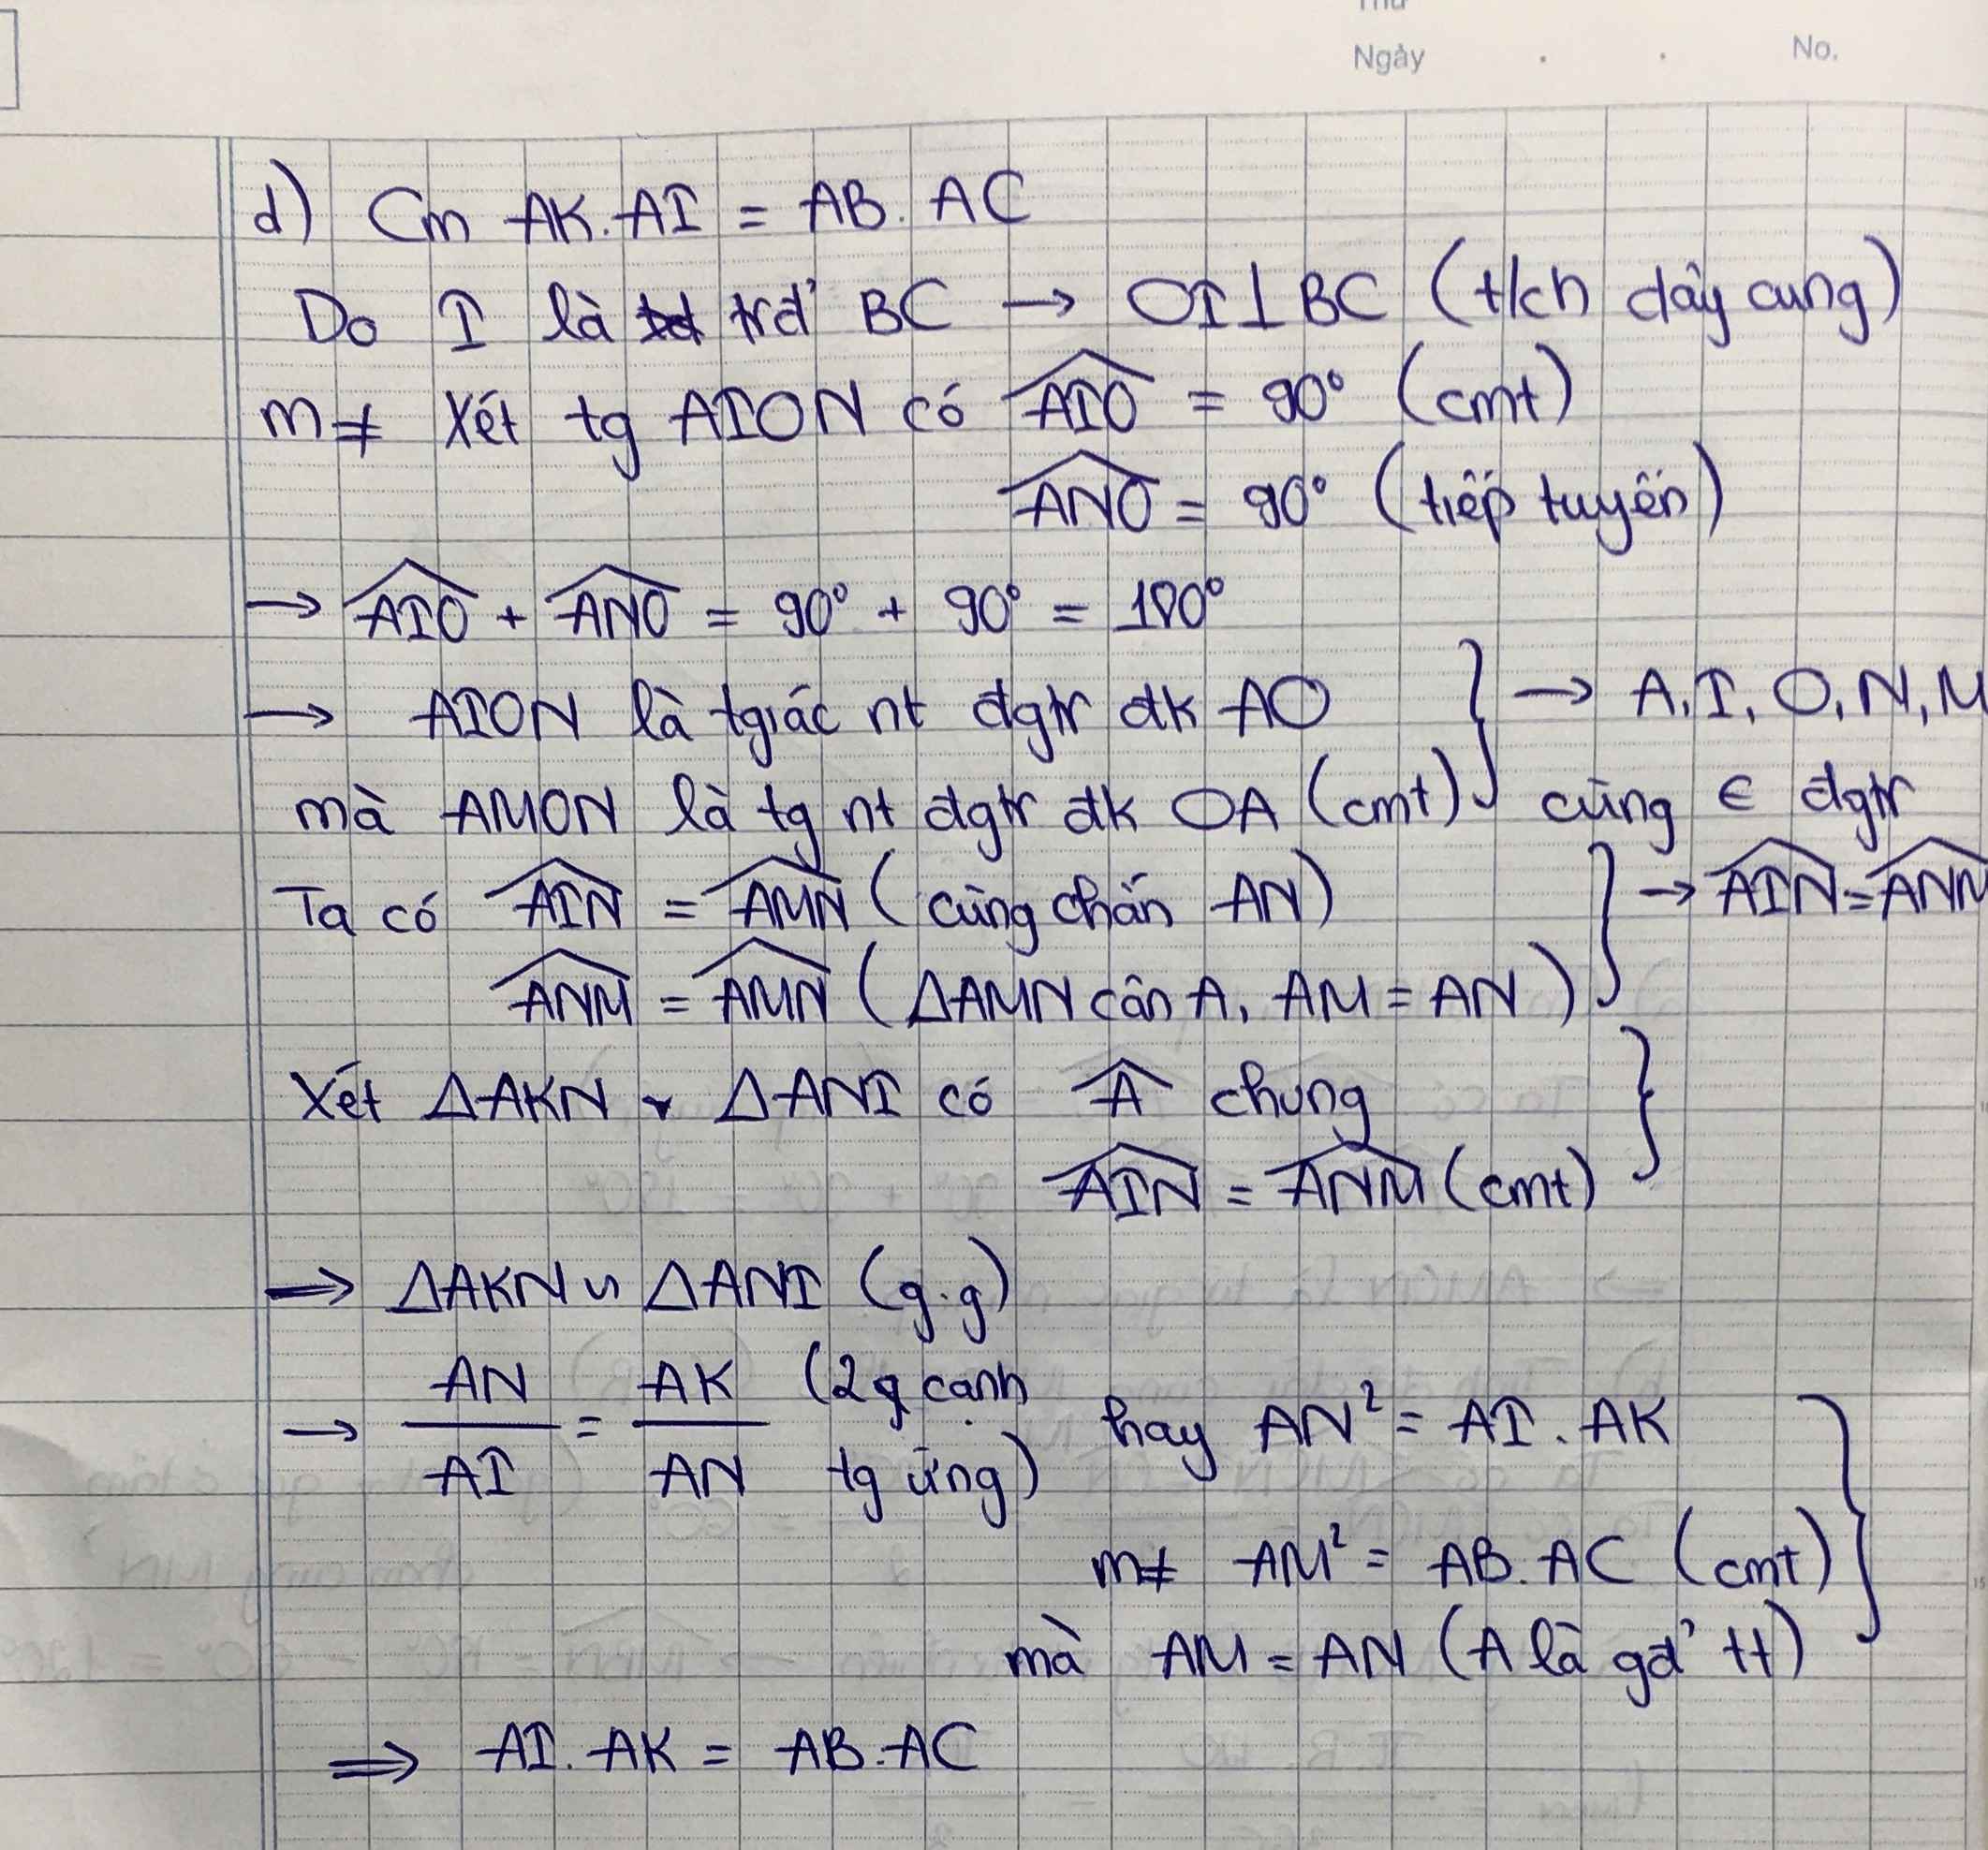 Ngày . . No.
d) Cm AK.AI = AB.AC
Do I là trđ' BC → OI⊥BC (t/ch dây cung)
m≠ Xét tg AION có \widehat{AIO} = 90° (cmt)
\widehat{ANO} = 90° (tiếp tuyến)
→ \widehat{AIO} + \widehat{ANO} = 90° + 90° = 180°
→ AION là tgiác nt đgtr đk AO } → A, I, O, N, M
mà AMON là tg nt đgtr đk OA (cmt) cùng ∈ đgtr
Ta có \widehat{AIN} = \widehat{AMN} (cùng chắn AN) } → \widehat{AIN} = \widehat{ANM}
\widehat{ANM} = \widehat{AMN} (ΔAMN cân A, AM = AN)
Xét ΔAKN v ΔANI có \widehat{A} chung }
\widehat{AIN} = \widehat{ANM} (cmt)
→ ΔAKN ∽ ΔANI (g.g)
→ AN/AI = AK/AN (2 cạnh tg ứng) hay AN² = AI.AK }
m≠ AM² = AB.AC (cmt)
mà AM = AN (A là gđ' tt)
⇒ AI.AK = AB.AC